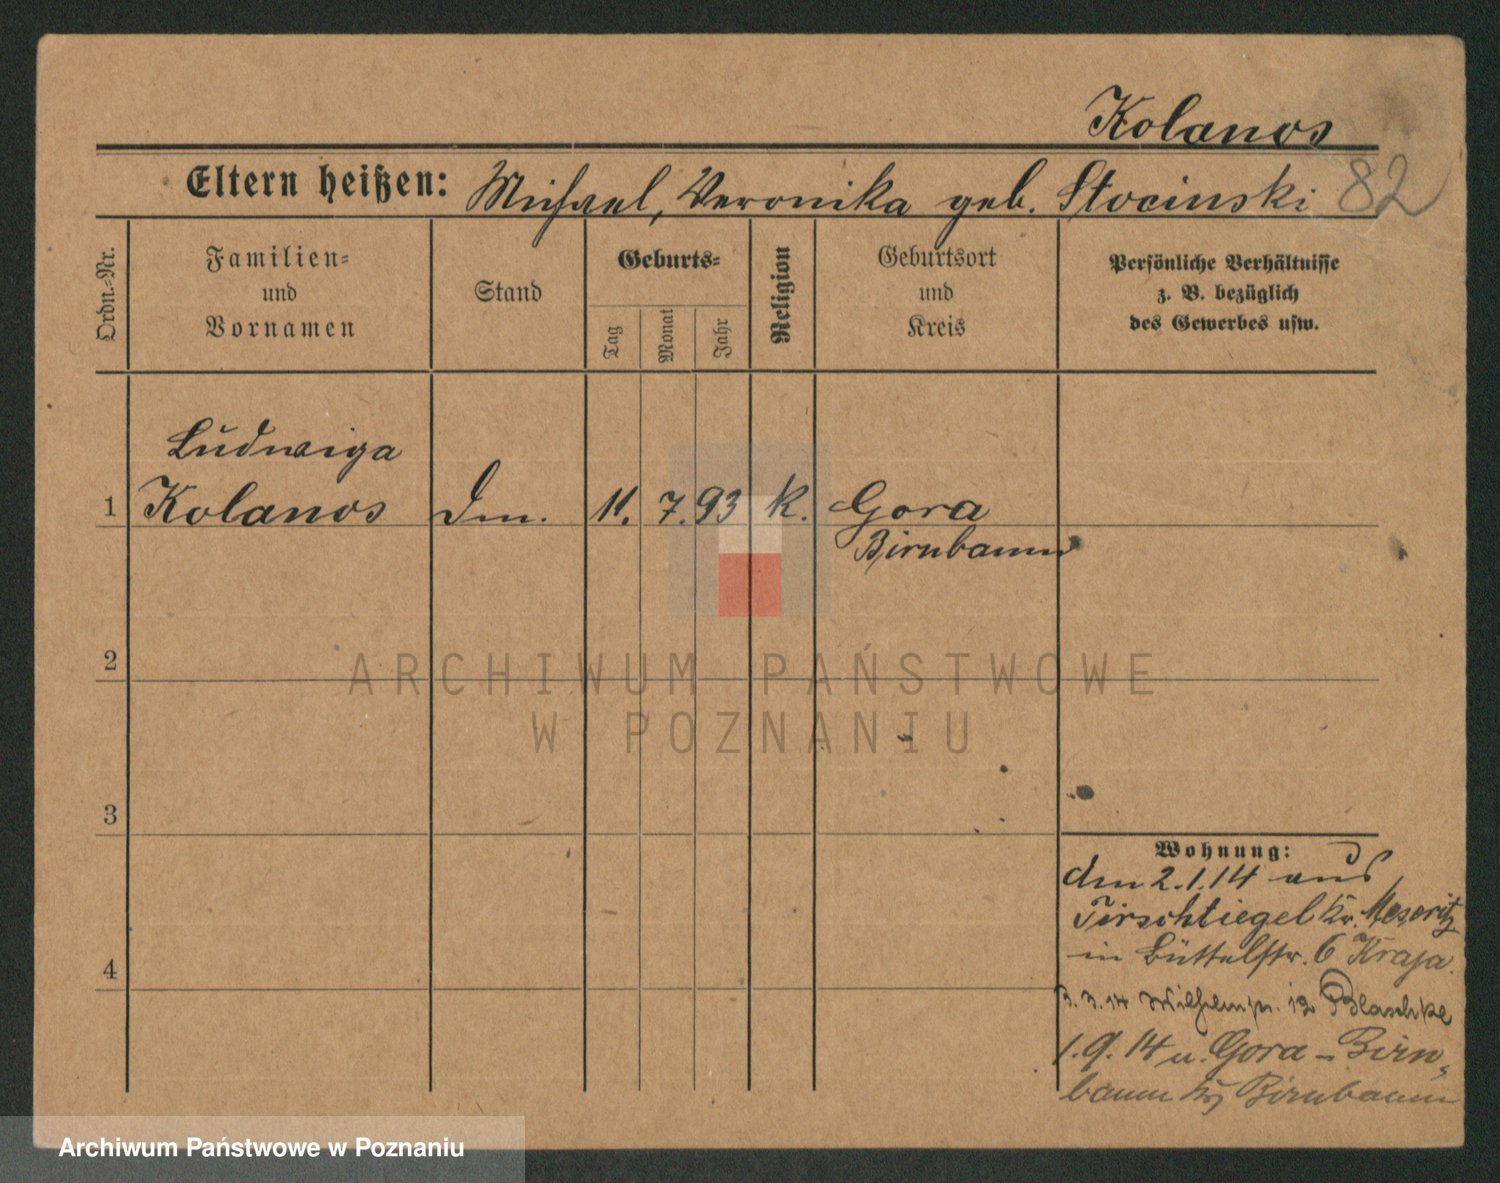 Kolanos
Eltern heißen: Michael, Veronika geb. Stocinski 82
Ordn.-Nr.
Familien-
und
Vornamen
Stand
Geburts-
Tag
Monat
Jahr
Religion
Geburtsort
und
Kreis
Persönliche Verhältnisse
z. B. bezüglich
des Gewerbes usw.
Ludwiga
1 Kolanos 11. 7. 93 k. Gora
Birnbaum
2
ARCHIWUM PAŃSTWOWE
W POZNANIU
3
Wohnung:
den 2.1.14 aus
Tirschtiegel Kr. Meseritz
4
in Büttelstr. 6 Kraja.
3.3.14 Wilhelmstr. 12 Blaschke
1.9.14 n. Gora - Birn-
baum Krs Birnbaum
Archiwum Państwowe w Poznaniu